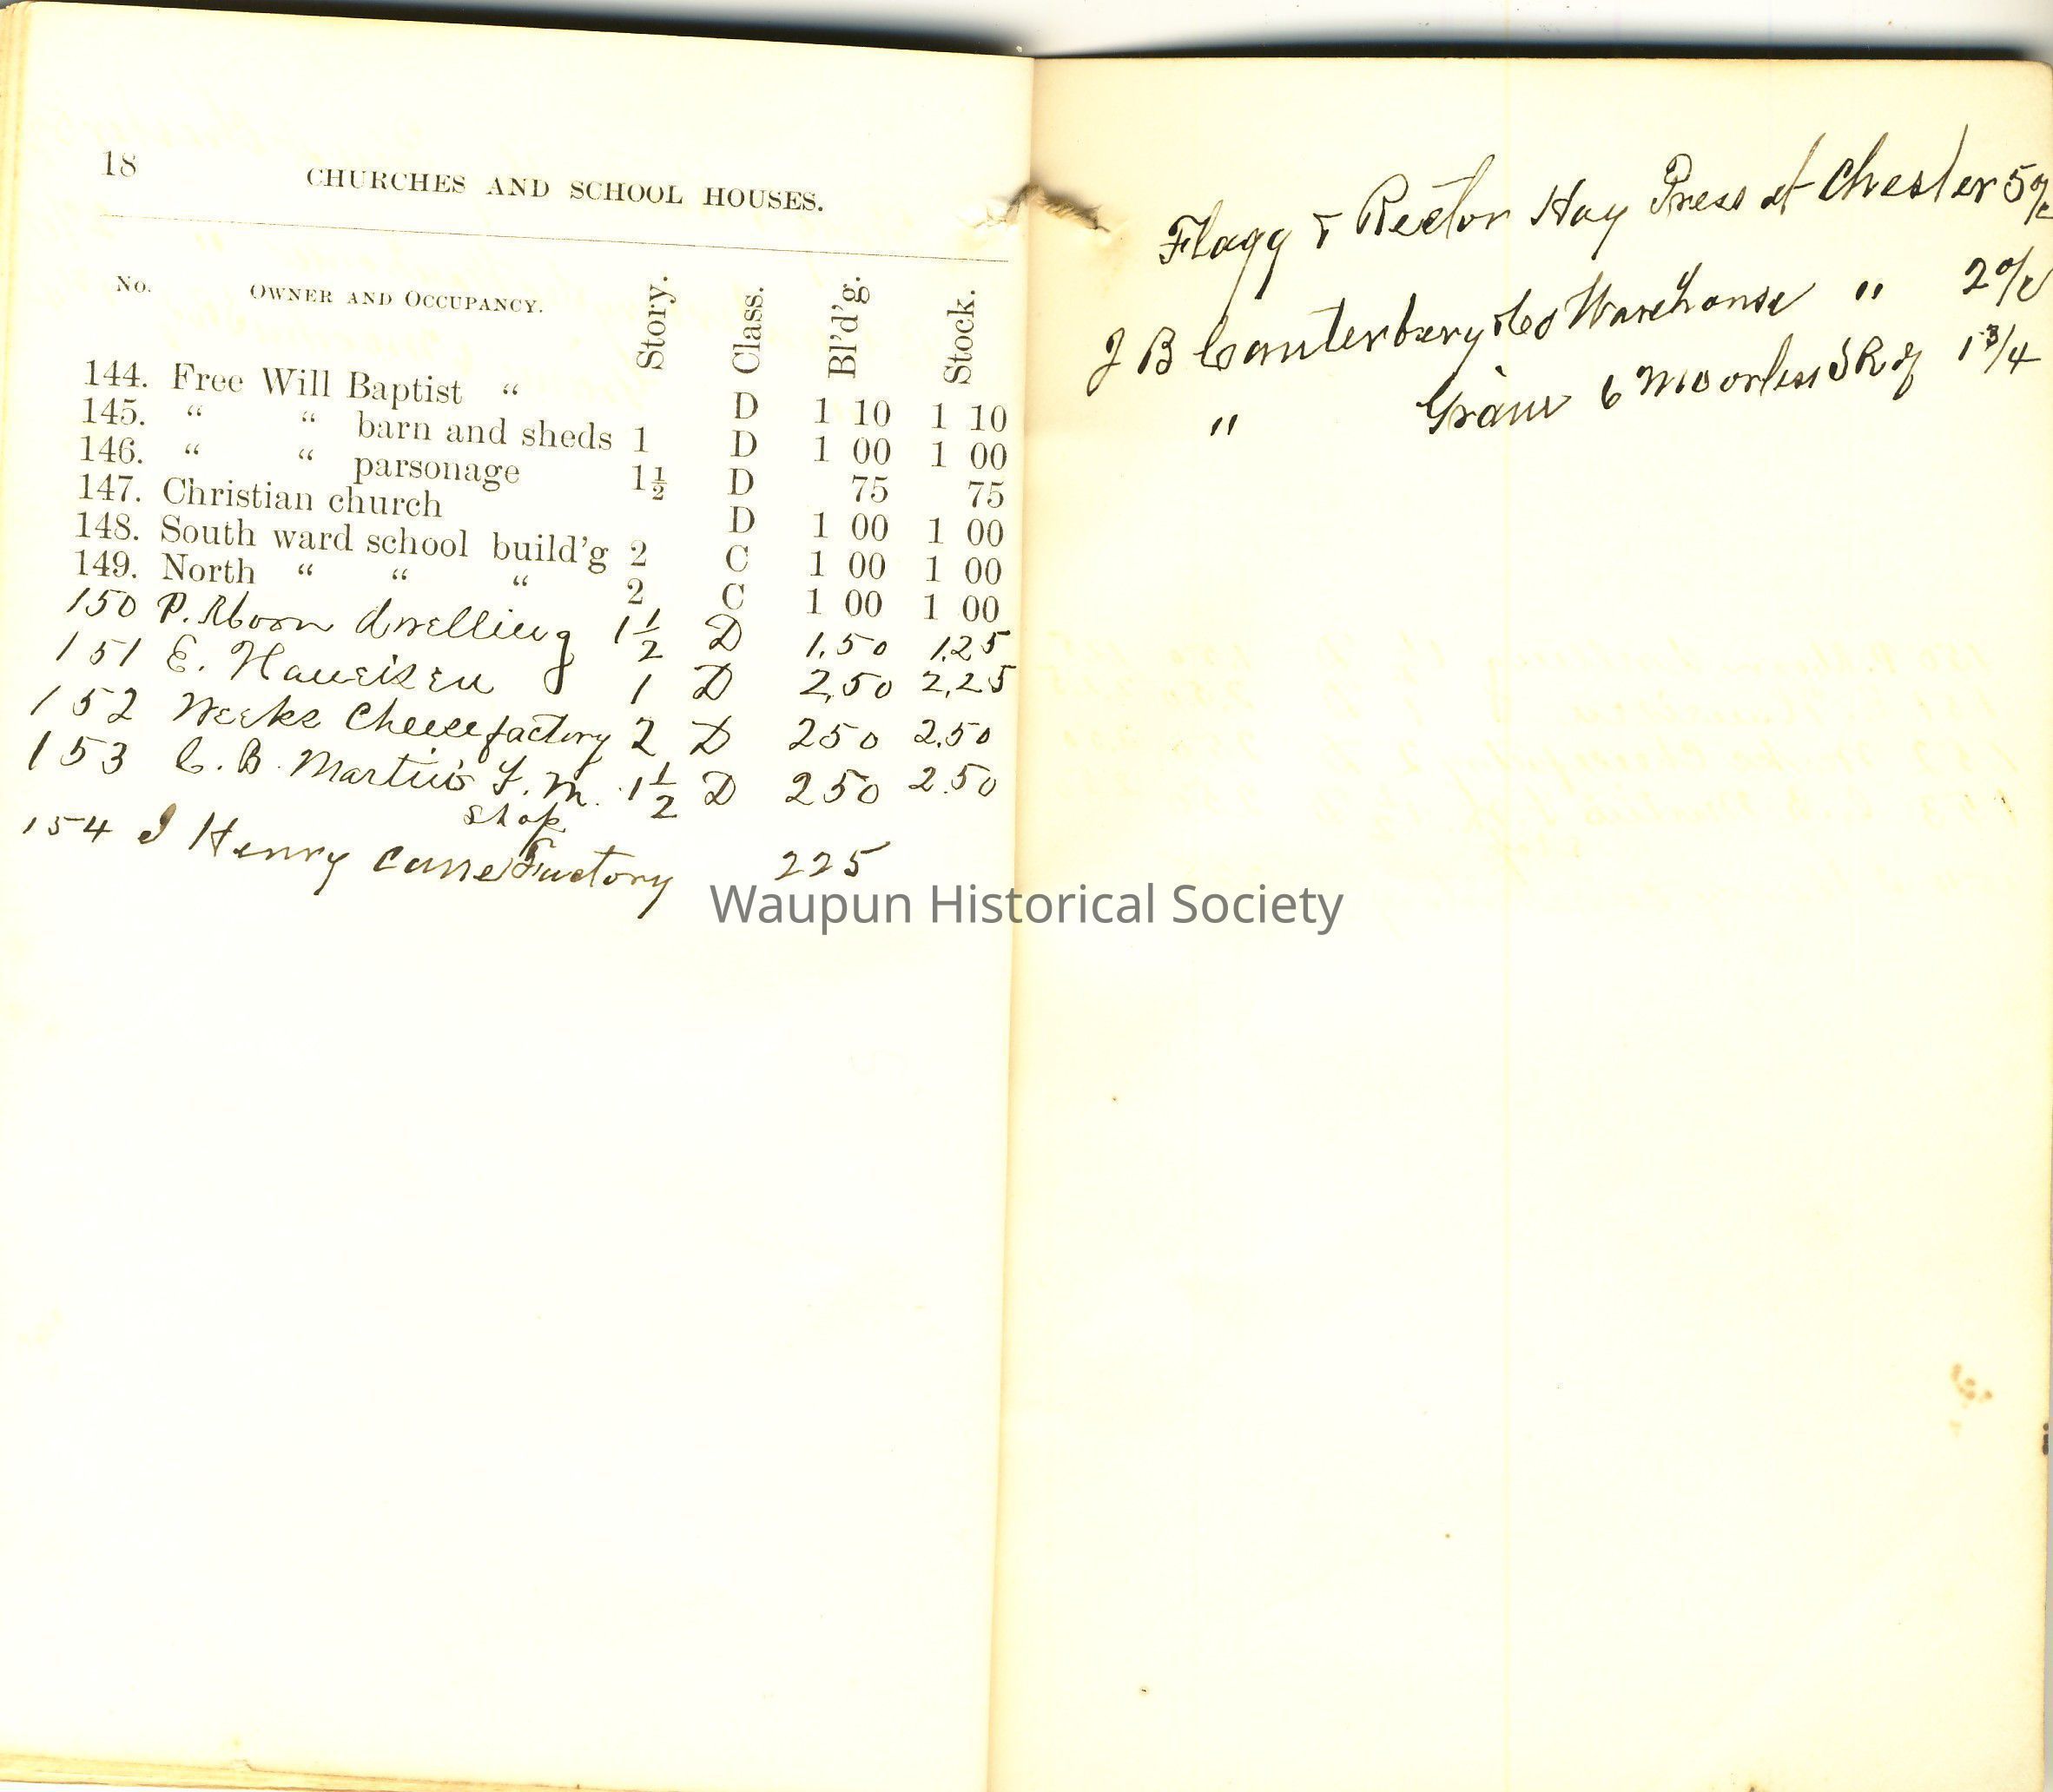 18
CHURCHES AND SCHOOL HOUSES.
No. OWNER AND OCCUPANCY. Story. Class. Bl'd'g. Stock.
144. Free Will Baptist “ D 1 10 1 10
145. “ “ barn and sheds 1 D 1 00 1 00
146. “ “ parsonage 1½ D 75 75
147. Christian church D 1 00 1 00
148. South ward school build'g 2 C 1 00 1 00
149. North “ “ “ 2 C 1 00 1 00
150 P. Aborn dwelling 1½ D 1.50 1.25
151 E. Haueisen 1 D 2,50 2,25
152 Weeks Cheese factory 2 D 250 2.50
153 C. B. Martin's F. M. 1½ D 250 2.50
shop
154 I Henry cane Factory 225
Flagg & Rector Hay Press at Chester 5%
J B Canterbery & Co Warehouse " 2%
" Grain 6 Mo or less 1 3/4
Waupun Historical Society